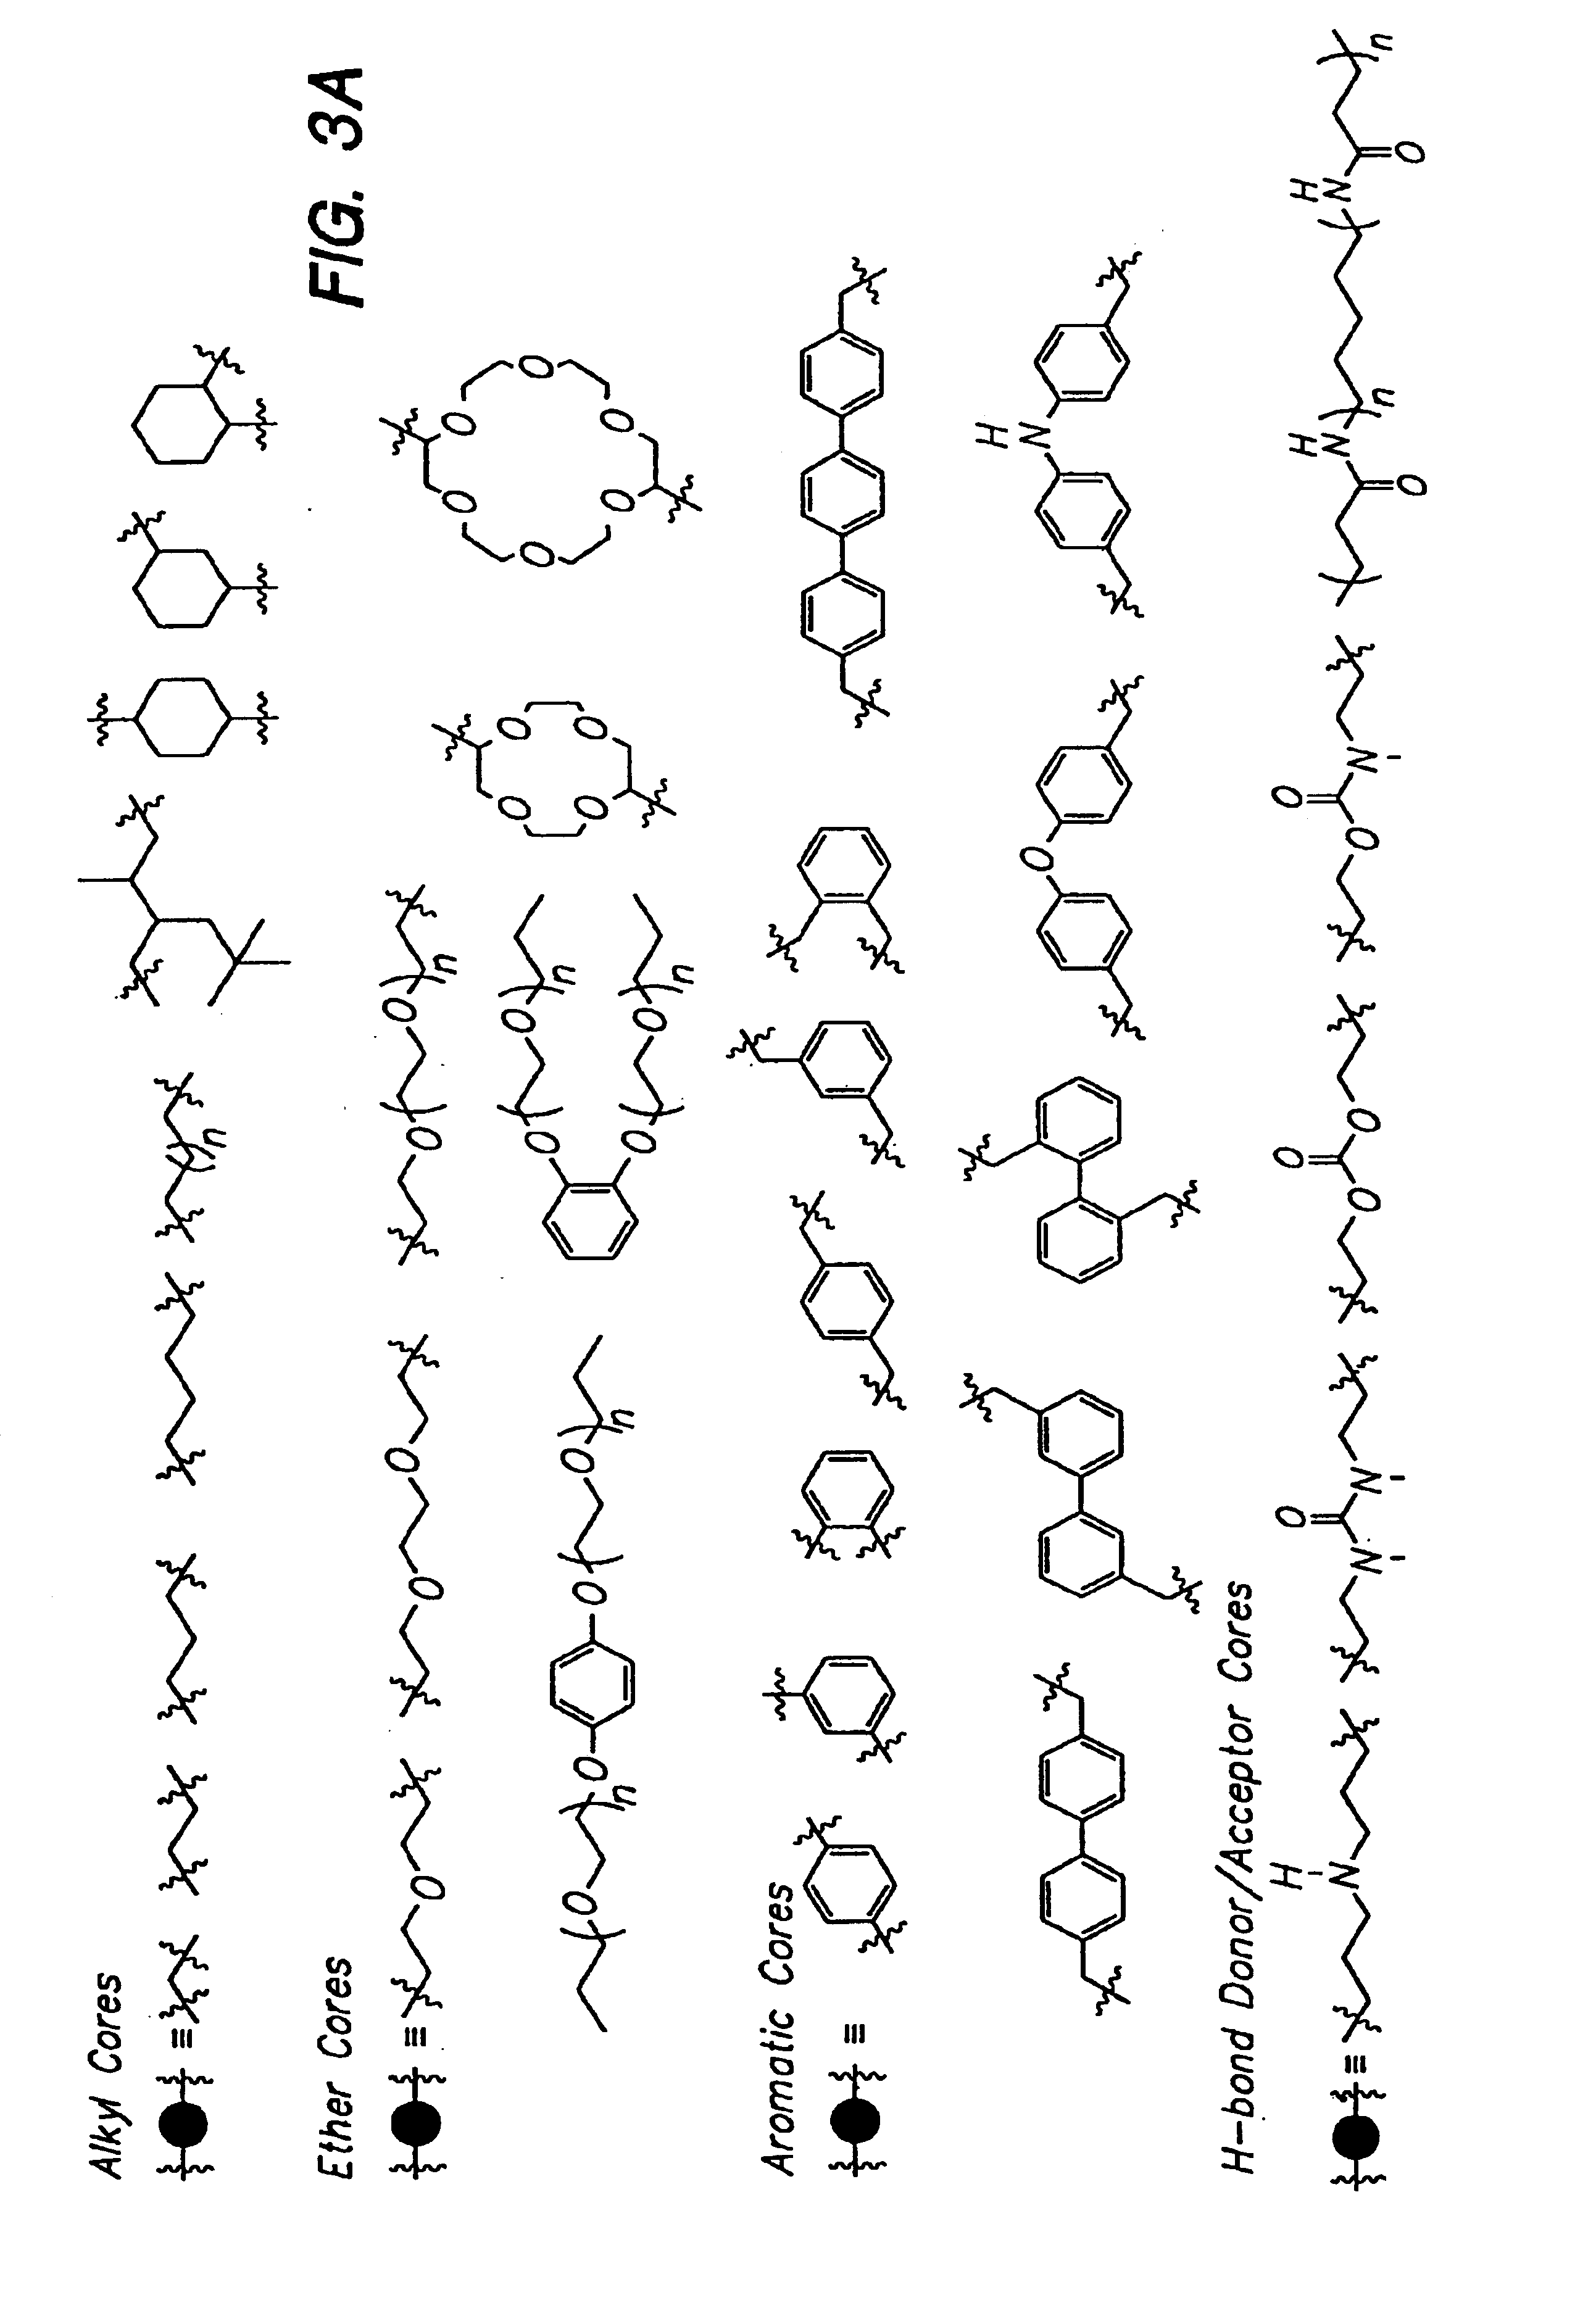 FIG. 3A
Alkyl Cores
≡
n
Ether Cores
≡ O O O O O n
O O O O
O O O O O O
O O n O O n
O O n
O O n
Aromatic Cores
≡
O
H
N
H-bond Donor/Acceptor Cores
≡
H
N
O
N N
O
O O
O
O N
O
H
N
n
H
N
O
n